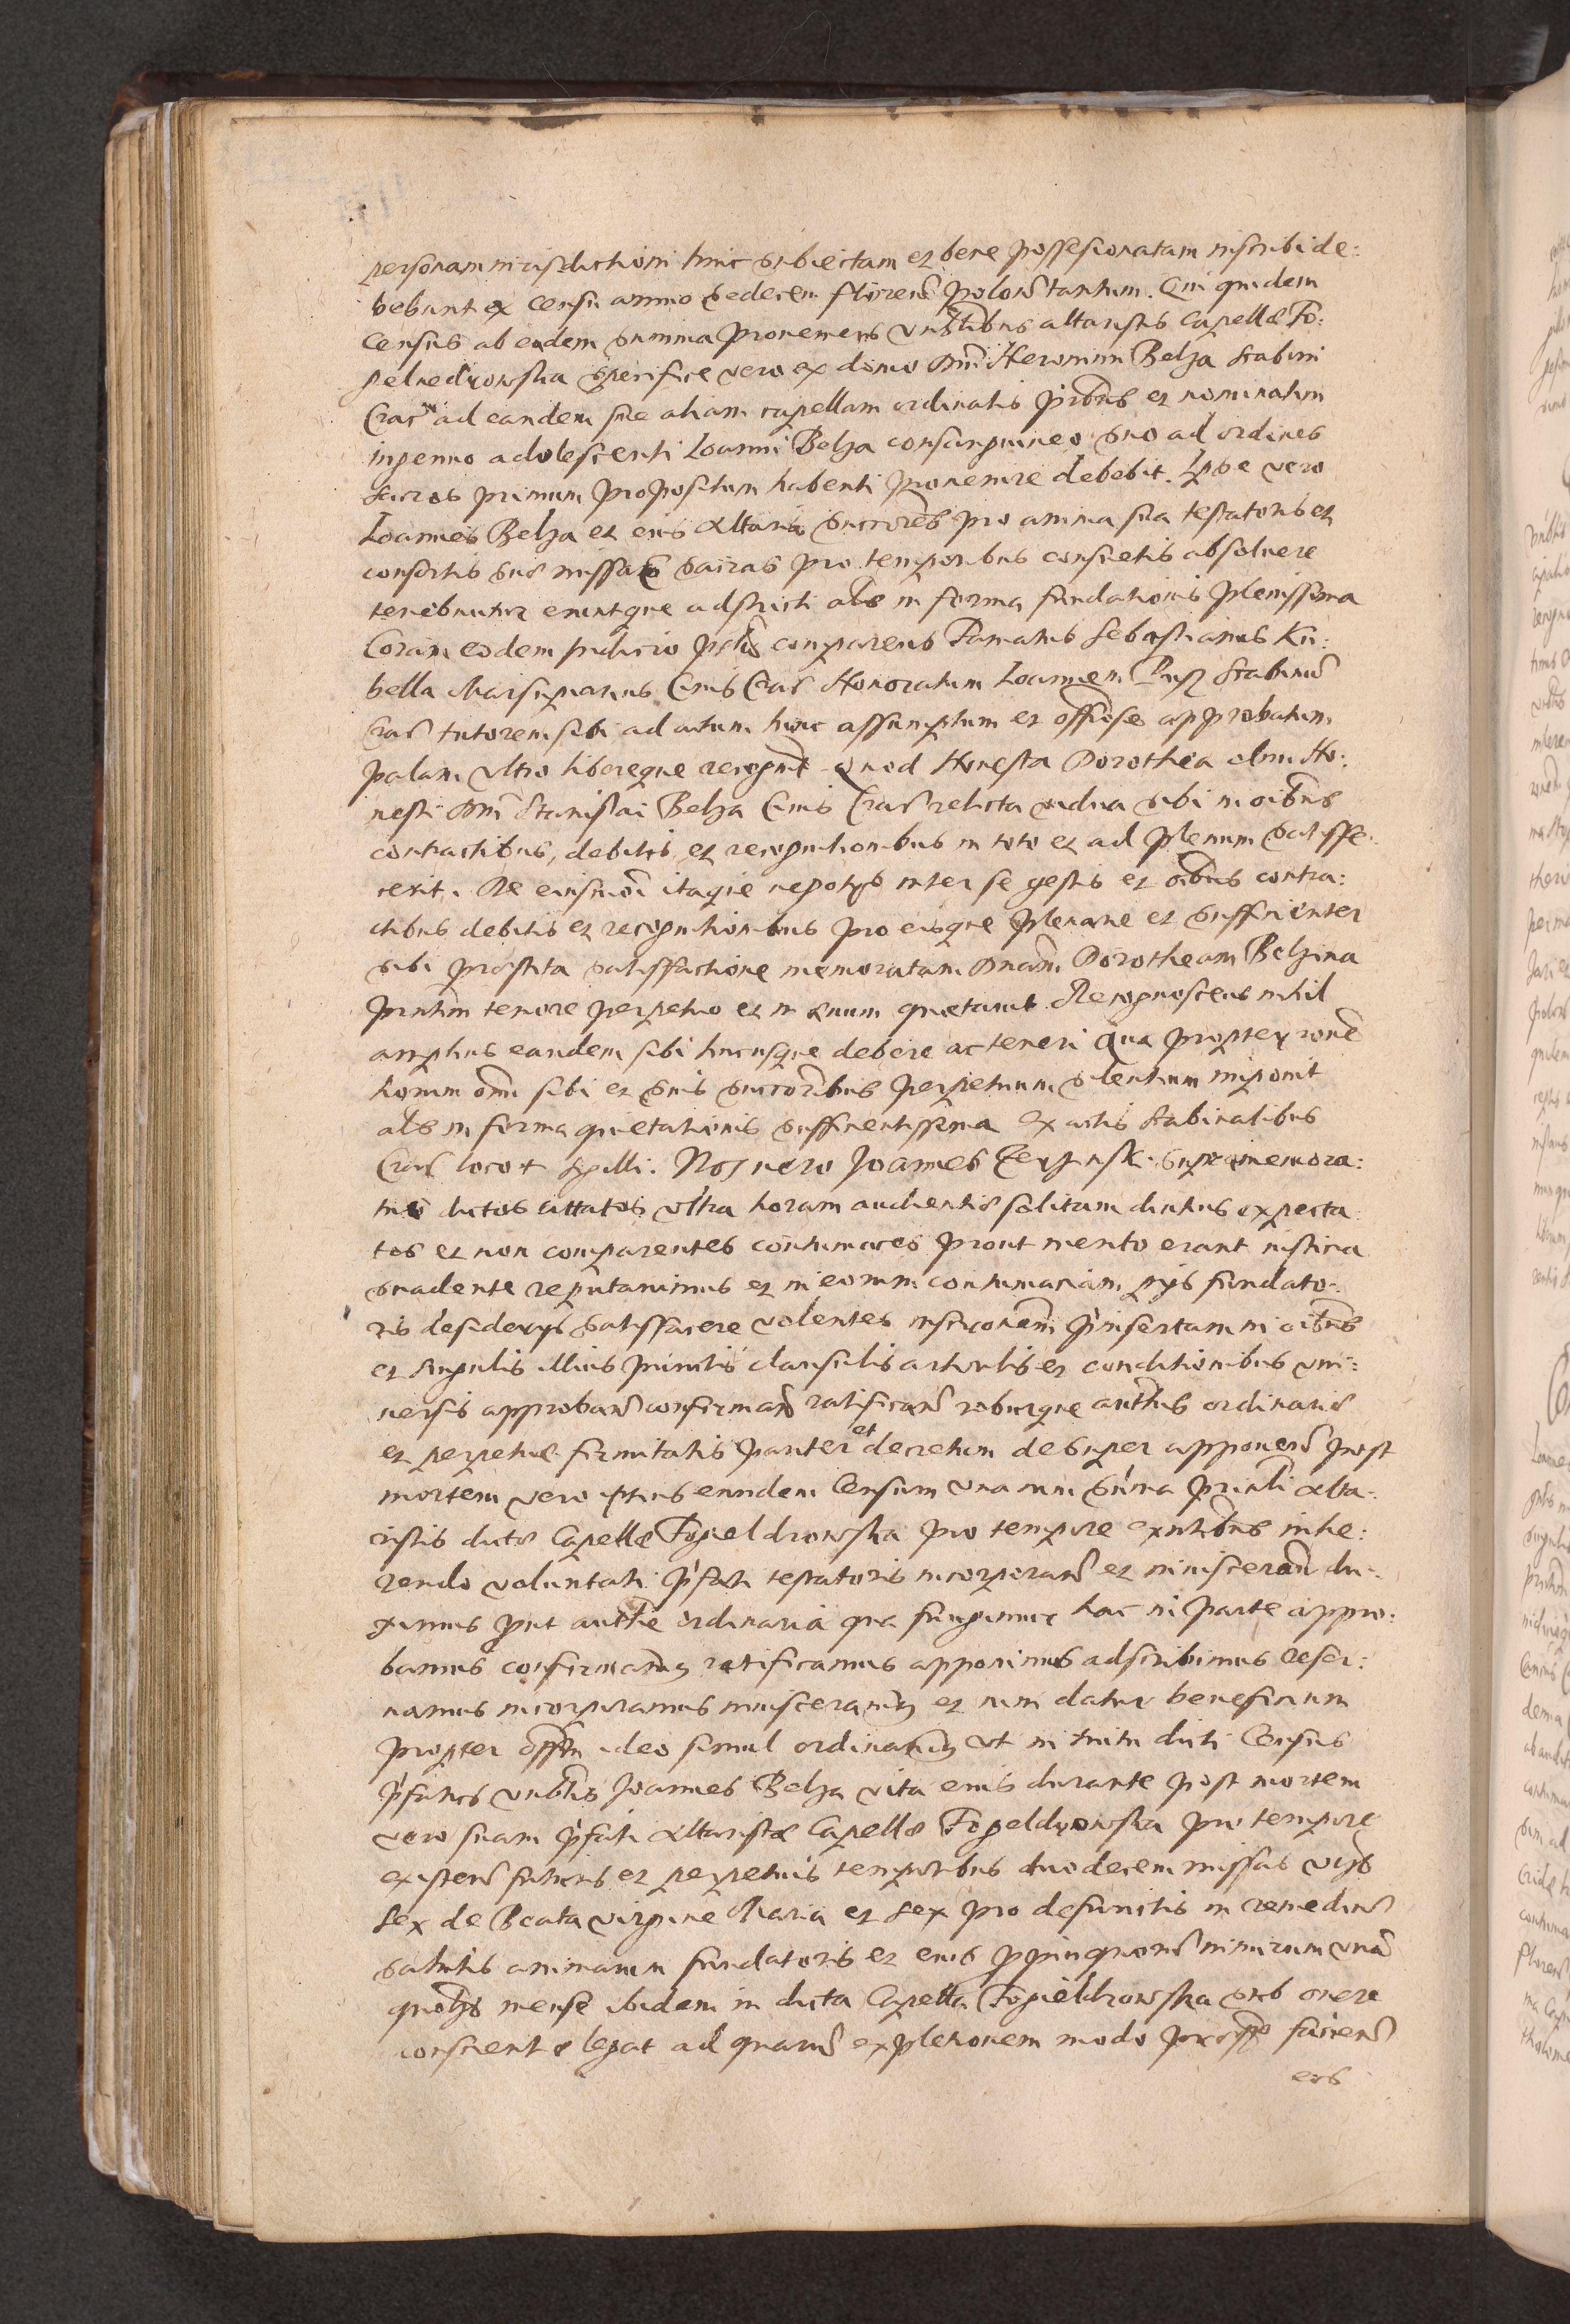 personam iurisdictioni huic subiectam et bene possesionatam inscribi de:
bebunt ex censu annuo sedecem florenoru Polon tantum. Qui quidem
Census ab eadem summa proueniens vnblibus altaristis Capellæ Fo:
gelnedrowska specifice vero ex domo Dni Hieronimi Belza Scabini
Crac ad eandem siue aliam capellam ordinatis prbris et nominatim
ingenuo adolescenti Ioanni Belza consanguineo suo ad ordines
sacros primum propositum habenti prouenire debebit. Ipse vero
Ioannes Belza et eius Altaris succrores pro anima sua testatoris et
consortis suæ missas sacras pro temporibus consuetis absoluere
tenebuntur eruntque adstricti als in forma fundationis plenissima
Coram eodem iudicio psls comparens Famatus Sebastianus Ku:
bella Marsupiarius Ciuis Crac Honoratum Ioannem Scabinu
Crac tutorem sibi ad actum hunc assumptum et offiose approbatum
palam vltro libereque recognit quod Honesta Dorothea olim Ho:
nesti Dni Stanislai Belza Ciuis Crac relicta vidua sibi in oibus
contractibus, debitis et recognitionibus in toto et ad plenum satisfe:
cerit. De eiusmoi itaque negotys inter se gestis et oibus contra:
ctibus debitis et recognitionibus pro eisque plenarie et sufficienter
sibi præstita satisfactione memoratam Dnam Dorotheam Belzina
pntim tenore perpetuo et in æuum quietauit Recognoscens nihil
amplius eandem sibi hucusque debere ac teneri Qua propter rone
horum omi sibi et suis succoribus perpetuum silentium imponit
als in forma quietationis sufficientissima Ex actis Scabinalibus
Crac loco + sigilli. Nos vero Joannes supramemora:
tus dictos cittatos vltra horam audientiæ solitam diutius expecta:
tos et non comparentes contumaces prout merito erant iusticia
suadente reputauimus et in eorum contumaciam pijs fundato:
ris desiderys satisfacere volentes inscriponem pinsertam in oibus
et singulis illius punctis clausulis articulis et conditionibus vni:
uersis approband confirmand ratificand roburque authtis ordinariæ
et perpetuæ firmitatis pariter et decretum desuper apponend post
mortem vero ipsius eundem Censum vna cum suma prinli Alta:
ristis dictæ Capellæ Fogieldrowska pro tempore exntibus inhe:
rendo voluntati pfati testatoris incorporand et inuiscerand du:
ximus put authte ordinaria qua fungimur hac in parte appro:
bamus confirmamus ratificamus apponimus adscribimus reser:
uamus incorporamus inuisceramus et cum datur beneficium
propter offm ideo simul ordinamus vt in tuitu dicti Census
pfatus vnblis Joannes Belza vita eius durante post mortem
vero suam pfati Altaristæ Capellæ Fogeldrowska pro tempore
existen futuris et perpetuis temporibus duodecem missas
sex de Beata virgine Maria et sex pro defunctis in remediu
salutis animarum fundatoris et eius ppinquoru nimirum vna
quolis mense ibidem in dicta Capella Fogieldrowska sub onere
conscientiæ legat ad quarum expletionem modo præmisso faciend
eos